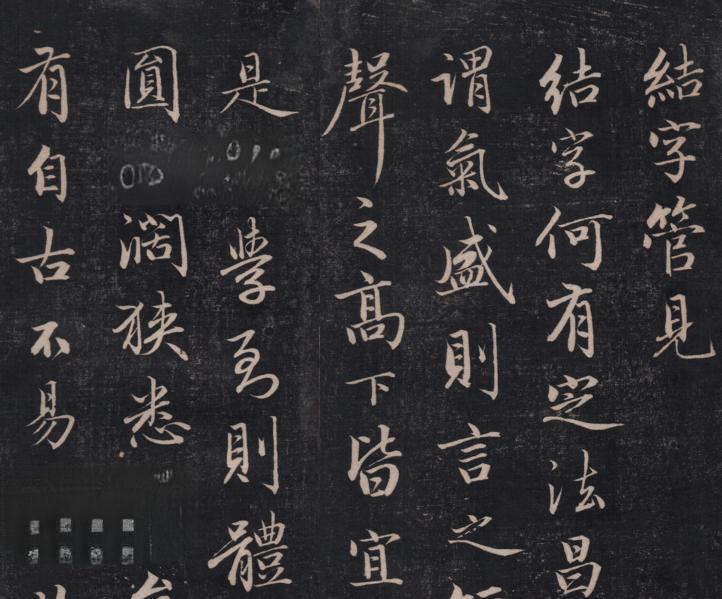 結字管見
結字何有定法昌
謂氣盛則言之
聲之高下皆宜
是學到則體
圓濶狹悉
有自古不易